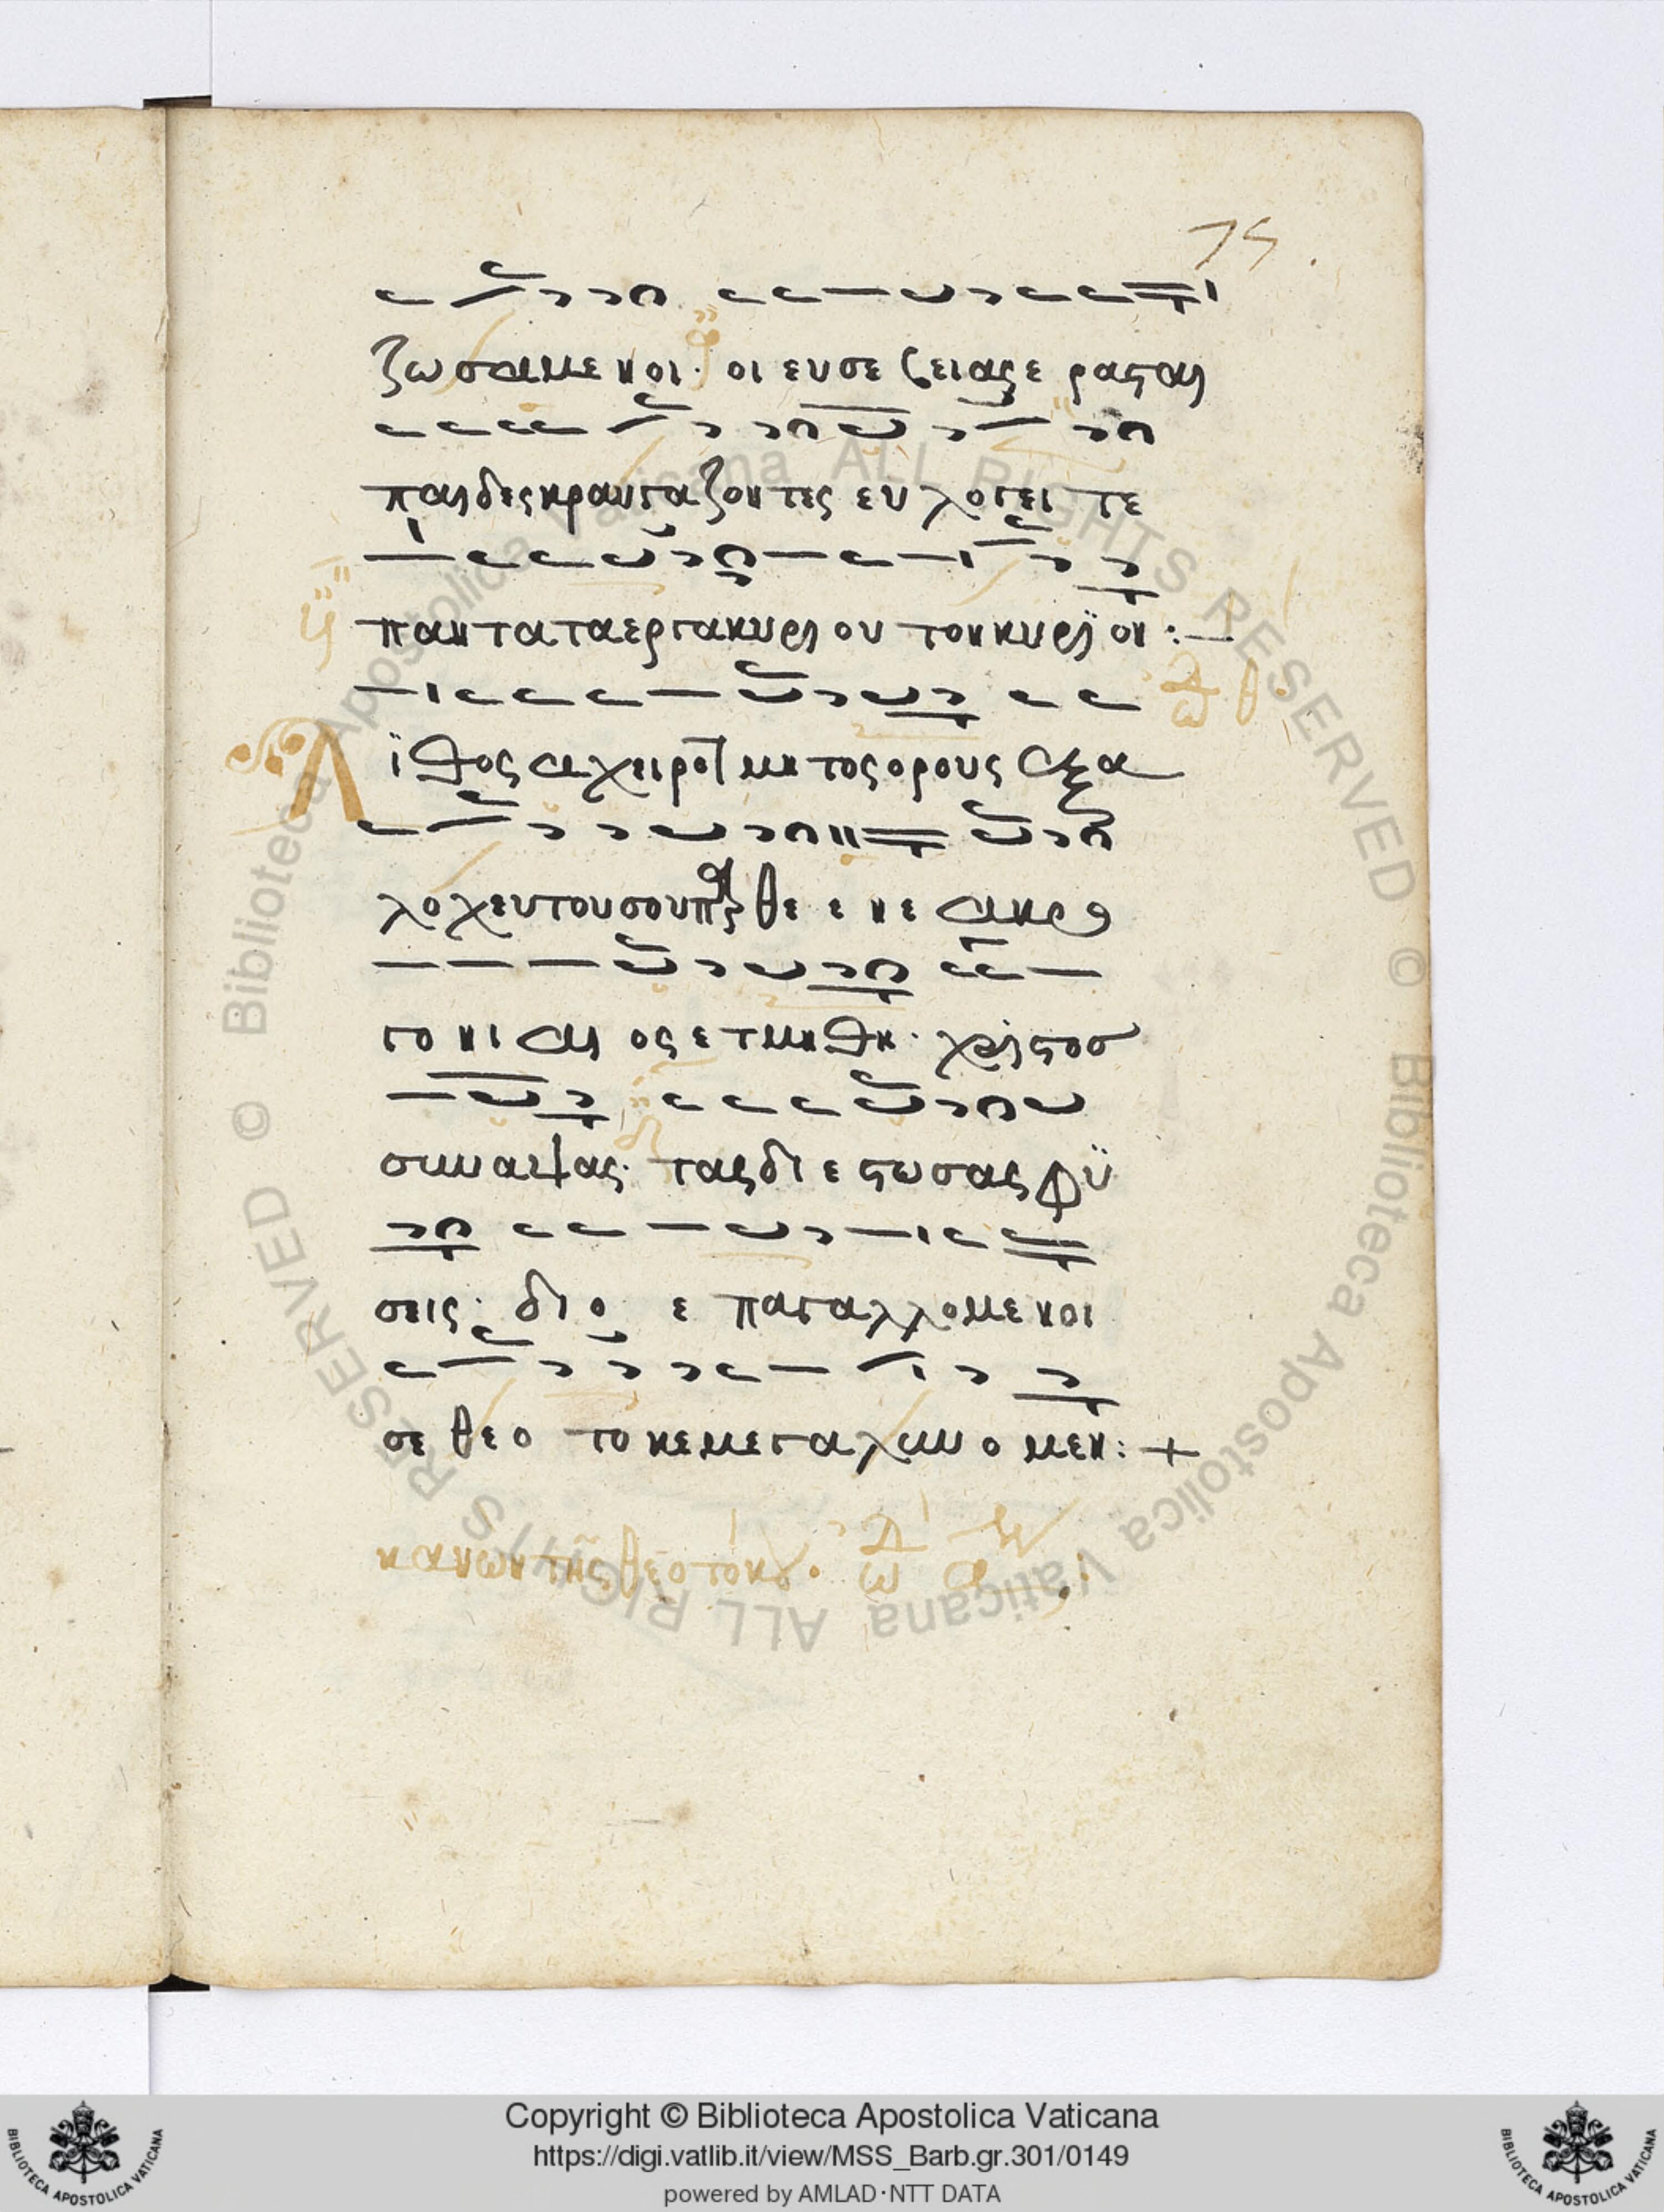 75
ζωσαμενοι· οι ευσεβειας ερασται
παιδες κραυγαζοντες ευλογειτε
παντα τα εργα κυριου τον κυρϊον :—
Λϊθος αχειροτμητος ορους αξα
λοχευτου σου πρθε ε νε ακρο
γονιαιος ετμηθη· χριστοσ
συναψας· τας διεστωσας φϋ
σεις· διο επαγαλλομενοι
σε θεοτοκε μεγαλυνομεν: +
κανων της θεοτόκου·
Copyright © Biblioteca Apostolica Vaticana
https://digi.vatlib.it/view/MSS_Barb.gr.301/0149
powered by AMLAD·NTT DATA
© Biblioteca Apostolica Vaticana ALL RIGHTS RESERVED © Biblioteca Apostolica Vaticana ALL RIGHTS RESERVED
BIBLIOTECA APOSTOLICA VATICANA
BIBLIOTECA APOSTOLICA VATICANA